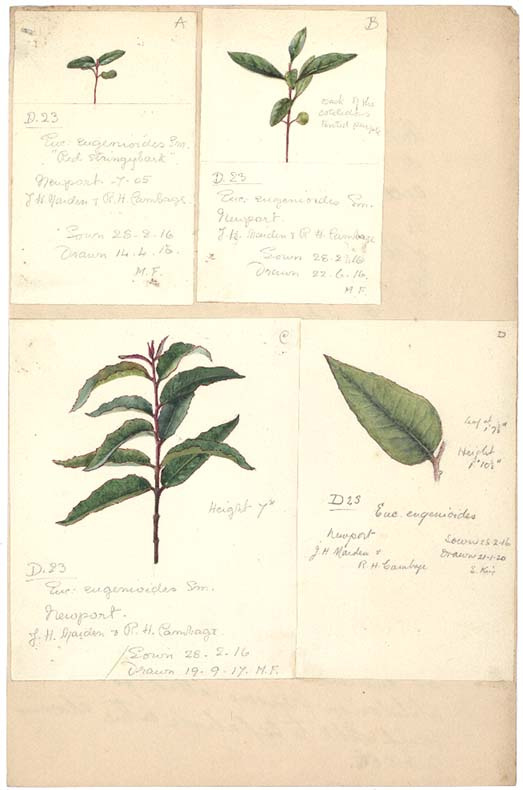 A
D.23
Euc. eugenioides Sm.
"Red Stringybark"
Newport -7-05
J H Maiden & R. H. Cambage.
Sown 28-2-16
Drawn 14.4.16.
M.F.
B
back of the
cotelidons
tinted purple
D.23
Euc. eugenioides Sm.
Newport.
J. H. Maiden & R H. Cambage
Sown 28-2-16
Drawn 22.6.16.
M F.
C
Height 7"
D.23
Euc. eugenioides Sm.
Newport.
J. H. Maiden & R. H. Cambage.
Sown 28-2-16
Drawn 19-9-17. M.F.
D
leaf at
Height
1' 10½"
D23
Euc. eugenioides
Newport
J H Maiden &
R. H. Cambage
Sown 28.2.16
Drawn 21-1-20
E. King